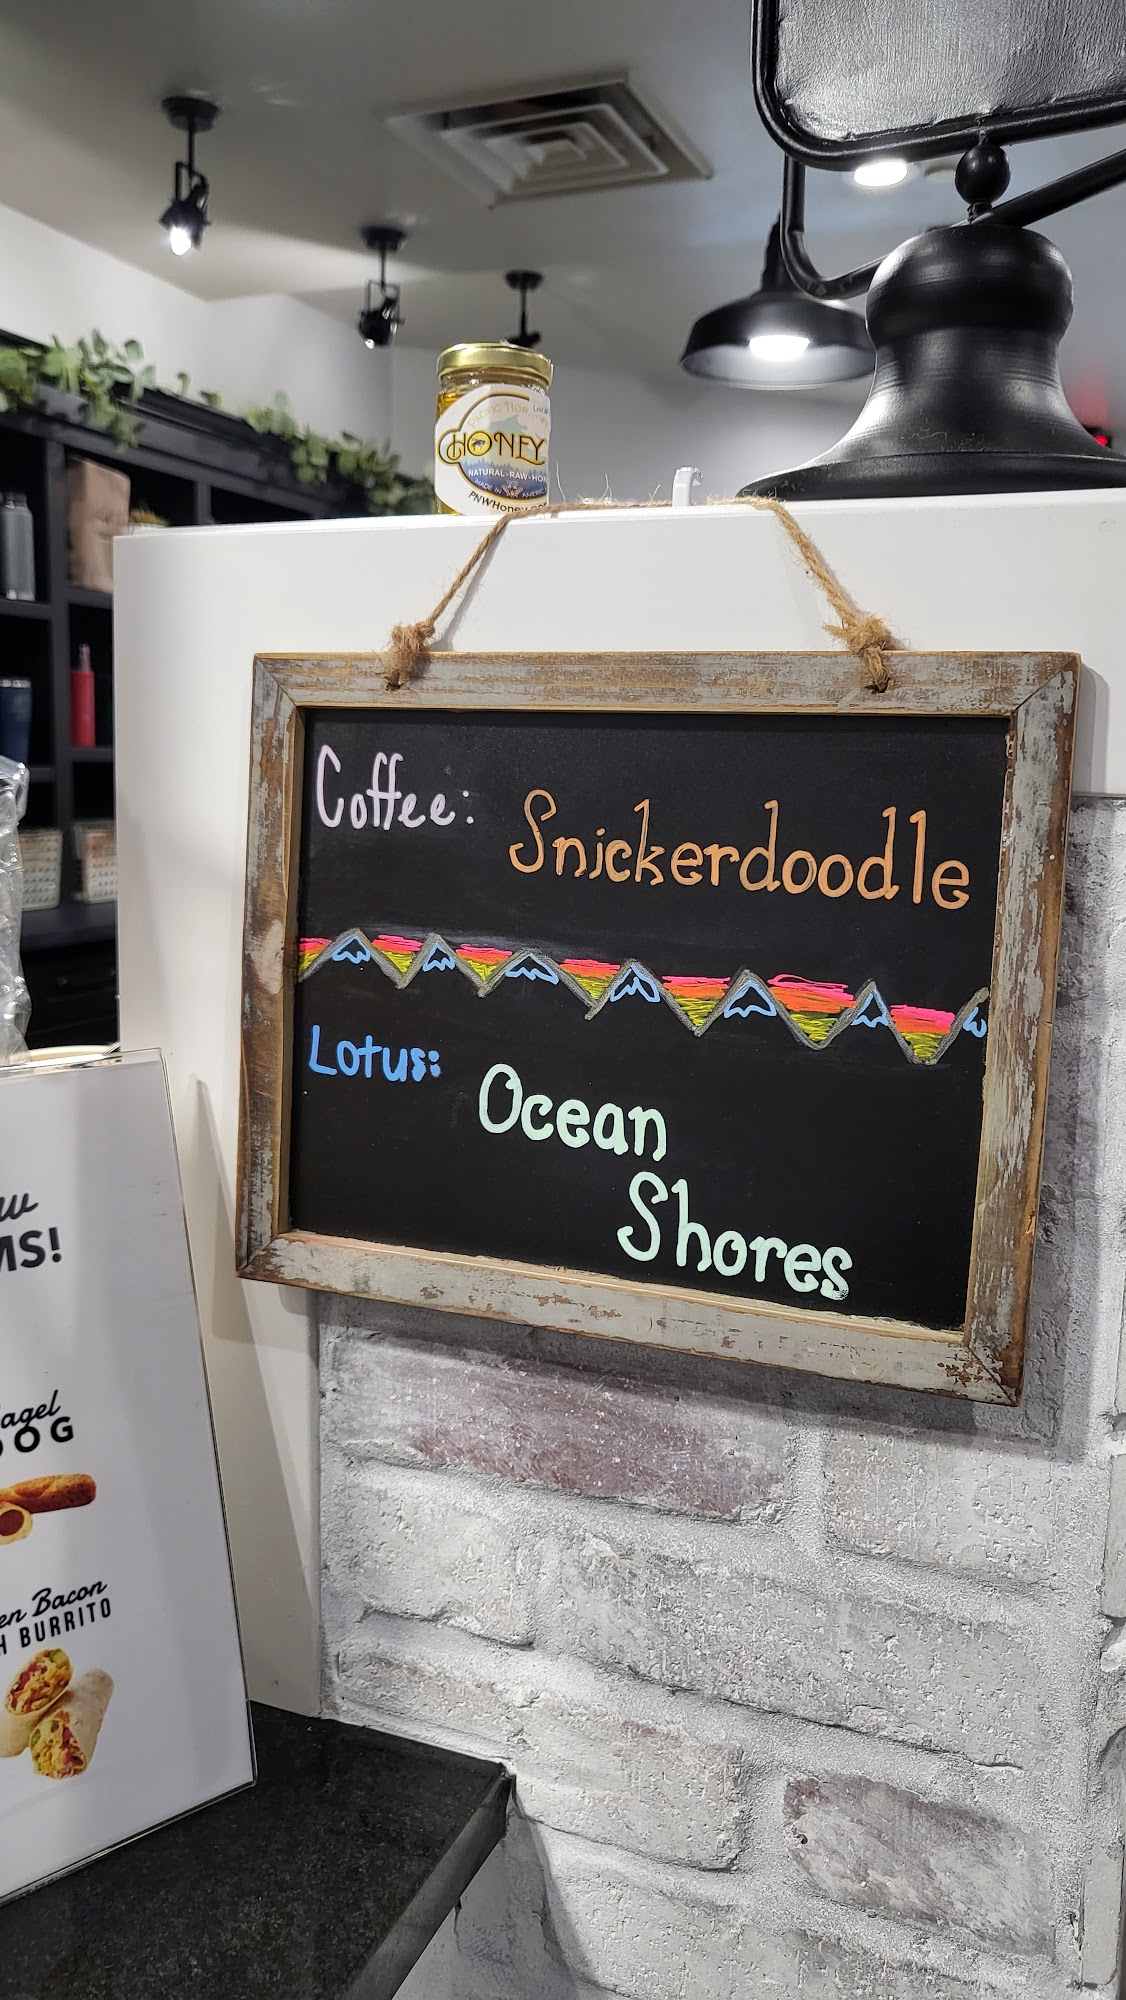 Pacific Nor
Local
HONEY
NATURAL-RAW-HON
MADE IN THE AMERICA
PNWHoney.co
Coffee:
Snickerdoodle
Lotus:
Ocean
Shores
MS!
agel
OG
en Bacon
H BURRITO